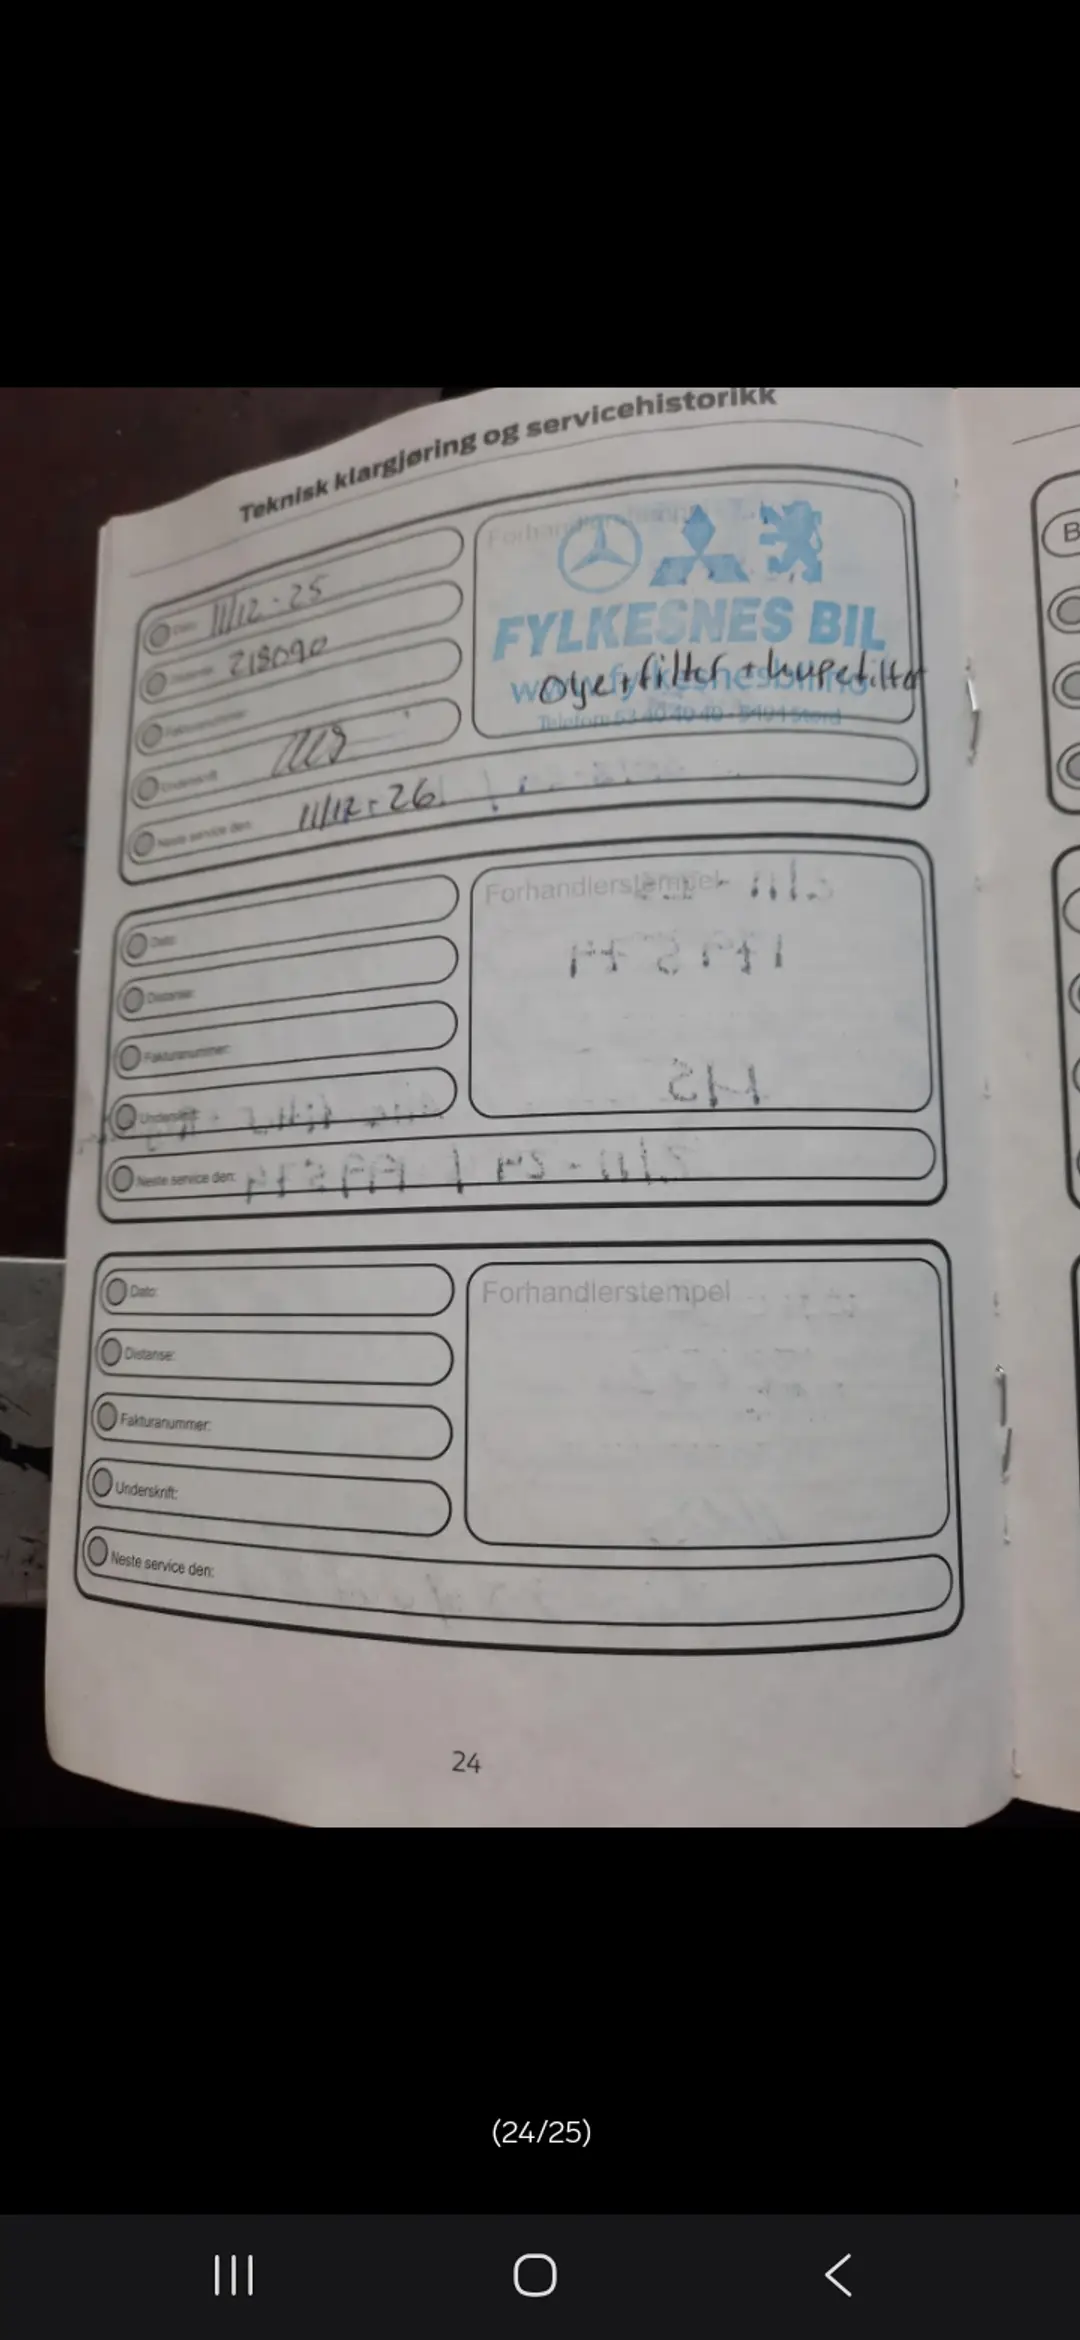 Teknisk klargjøring og servicehistorikk
Dato: 11/12-25
Distanse: 218090
Fakturanummer:
Underskrift:
Neste service den: 11/12-26
Forhandlerstempel
FYLKESNES BIL
www.fylkesnesbil.no
Olje + filter + kupefilter
Telefon: 53 40 40 40 - 5404 Stord
Dato:
Distanse:
Fakturanummer:
Underskrift:
Neste service den:
Forhandlerstempel
Dato:
Distanse:
Fakturanummer:
Underskrift:
Neste service den:
Forhandlerstempel
24
B
(24/25)